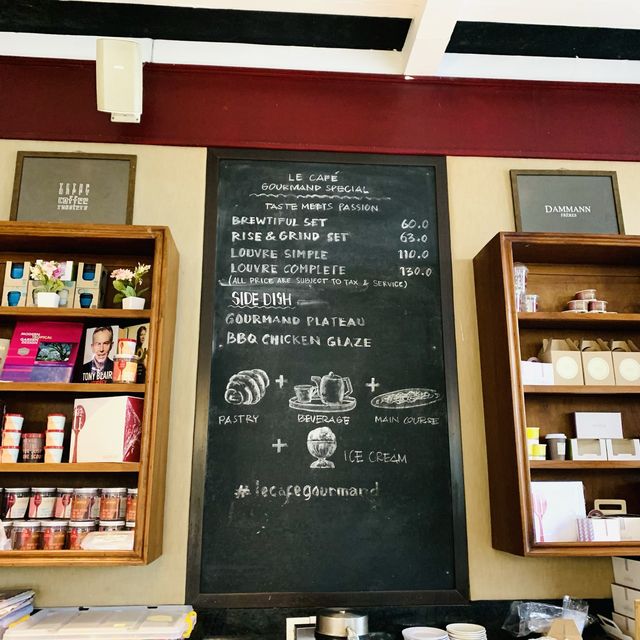 LE CAFÉ
GOURMAND SPECIAL
TASTE MEETS PASSION
BREWTIFUL SET 60.0
RISE & GRIND SET 63.0
LOUVRE SIMPLE 110.0
LOUVRE COMPLETE 130.0
(ALL PRICE ARE SUBJECT TO TAX & SERVICE)
SIDE DISH
GOURMAND PLATEAU
BBQ CHICKEN GLAZE
+ +
PASTRY BEVERAGE MAIN COURSE
+ ICE CREAM
#lecafegourmand
coffee
roasters
DAMMANN
FRÈRES
TONY BLAIR